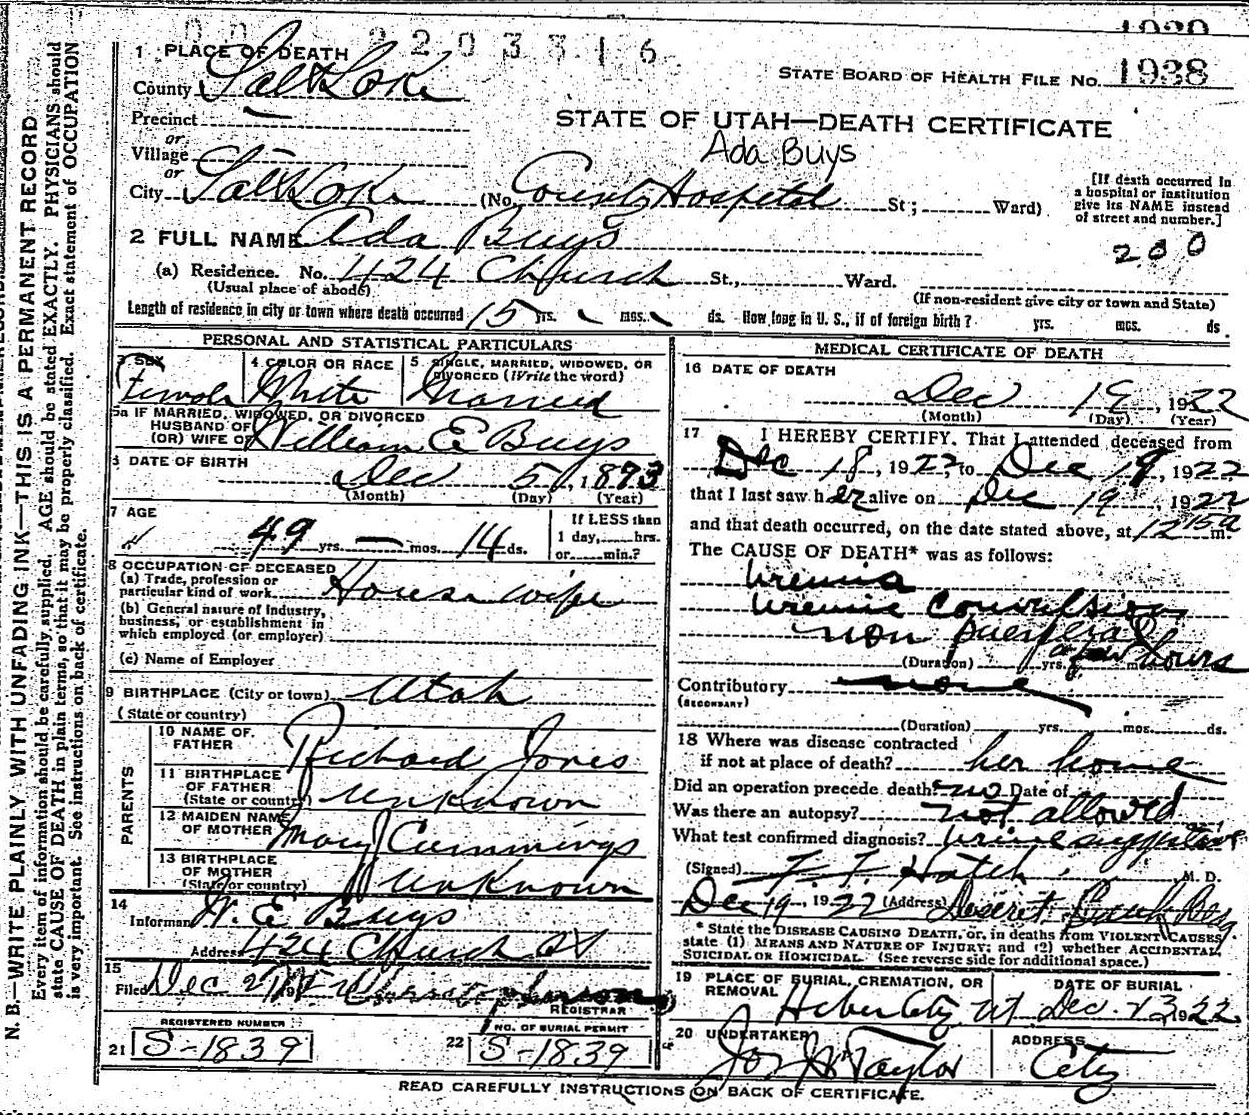 2203316
1939
1 PLACE OF DEATH
County Salt Lake
STATE BOARD OF HEALTH FILE No. 1938
Precinct
or
Village
or
STATE OF UTAH—DEATH CERTIFICATE
Ada Buys
City Salt Lake (No. County Hospital St; Ward)
[If death occurred in
a hospital or institution
give its NAME instead
of street and number.]
2 FULL NAME Ada Buys
200
(a) Residence. No. 424 Church St., Ward.
(Usual place of abode)
(If non-resident give city or town and State)
Length of residence in city or town where death occurred 15 yrs. mos. ds. How long in U. S., if of foreign birth? yrs. mos. ds.
PERSONAL AND STATISTICAL PARTICULARS
3 SEX Female
4 COLOR OR RACE White
5 SINGLE, MARRIED, WIDOWED, OR
DIVORCED (Write the word)
Married
5a IF MARRIED, WIDOWED, OR DIVORCED
HUSBAND OF
(OR) WIFE OF William E Buys
6 DATE OF BIRTH Dec 5, 1873
(Month) (Day) (Year)
7 AGE 49 yrs. — mos. 14 ds.
If LESS than
1 day, hrs.
or min.?
8 OCCUPATION OF DECEASED
(a) Trade, profession or
particular kind of work House wife
(b) General nature of Industry,
business, or establishment in
which employed (or employer)
(c) Name of Employer
9 BIRTHPLACE (City or town) Utah
(State or country)
PARENTS
10 NAME OF
FATHER Richard Jones
11 BIRTHPLACE
OF FATHER
(State or country) Unknown
12 MAIDEN NAME
OF MOTHER Mary J Cummings
13 BIRTHPLACE
OF MOTHER
(State or country) Unknown
14
Informant W. E Buys
Address 424 Church St
15
Filed Dec
REGISTRAR
REGISTERED NUMBER
21 S-1839
NO. OF BURIAL PERMIT
22 S-1839
MEDICAL CERTIFICATE OF DEATH
16 DATE OF DEATH
Dec 19, 1922
(Month) (Day) (Year)
17 I HEREBY CERTIFY, That I attended deceased from
Dec 18, 1922, to Dec 19, 1922
that I last saw her alive on Dec 19 1922
and that death occurred, on the date stated above, at 12 15a m.
The CAUSE OF DEATH* was as follows:
Uremia
Uremic Convulsion
non puerperal
(Duration) yrs. a few mos. hours
Contributory none
(SECONDARY)
(Duration) yrs. mos. ds.
18 Where was disease contracted
if not at place of death? her home
Did an operation precede death? no Date of
Was there an autopsy? not allowed
What test confirmed diagnosis? urine
(Signed) F. F. Hatch, M. D.
Dec 19, 1922 (Address) Deseret Bank Bldg
* State the DISEASE CAUSING DEATH, or, in deaths from VIOLENT CAUSES,
state (1) MEANS AND NATURE OF INJURY; and (2) whether ACCIDENTAL,
SUICIDAL OR HOMICIDAL. (See reverse side for additional space.)
19 PLACE OF BURIAL, CREMATION, OR
REMOVAL Heber City Ut
DATE OF BURIAL
Dec. 23 1922
20 UNDERTAKER
Taylor
ADDRESS
City
READ CAREFULLY INSTRUCTIONS ON BACK OF CERTIFICATE.
N. B.—WRITE PLAINLY WITH UNFADING INK—THIS IS A PERMANENT RECORD
Every item of information should be carefully supplied. AGE should be stated EXACTLY. PHYSICIANS should
state CAUSE OF DEATH in plain terms, so that it may be properly classified. Exact statement of OCCUPATION
is very important. See instructions on back of certificate.